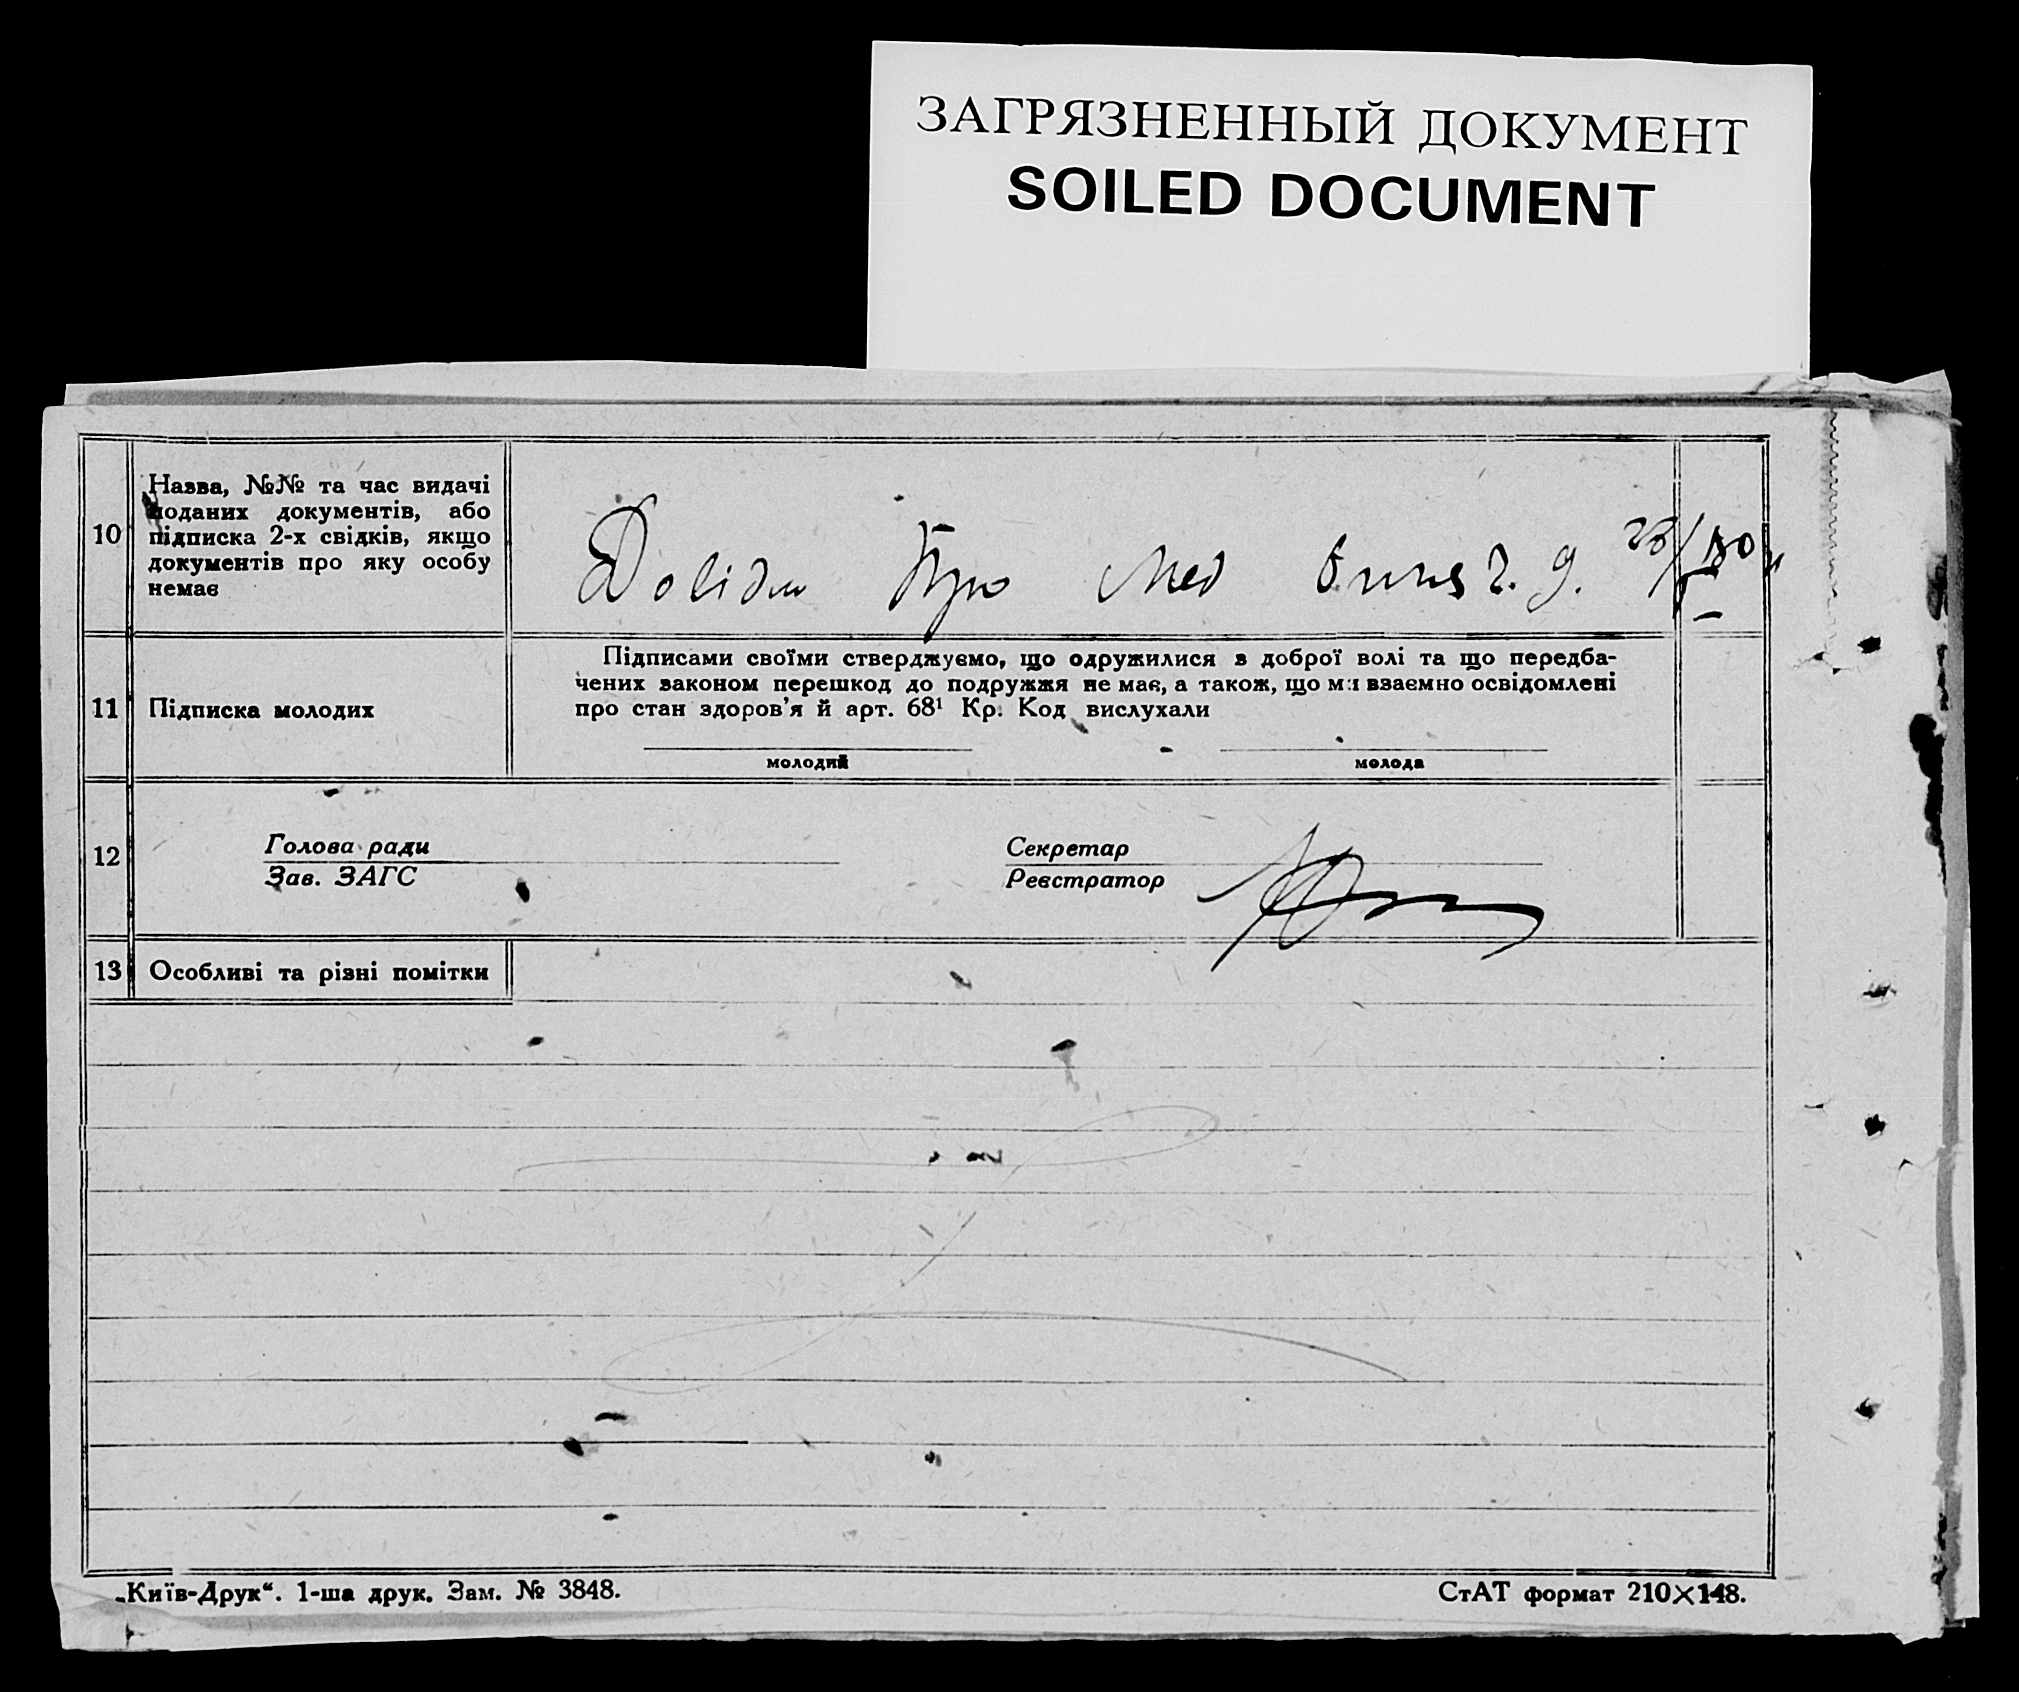 ЗАГРЯЗНЕННЫЙ ДОКУМЕНТ
SOILED DOCUMENT
10
Назва, №№ та час видачі
поданих документів, або
підписка 2-х свідків, якщо
документів про яку особу
немає
Довідки Про Мед
11
Підписка молодих
Підписами своїми стверджуємо, що одружилися з доброї волі та що передба-
чених законом перешкод до подружжя не має, а також, що ми взаємно освідомлені
про стан здоров'я й арт. 68¹ Кр. Код вислухали
молодий
молода
12
Голова ради
Зав. ЗАГС
Секретар
Реєстратор
13
Особливі та різні помітки
„Київ-Друк“. 1-ша друк. Зам. № 3848.
СтАТ формат 210×148.